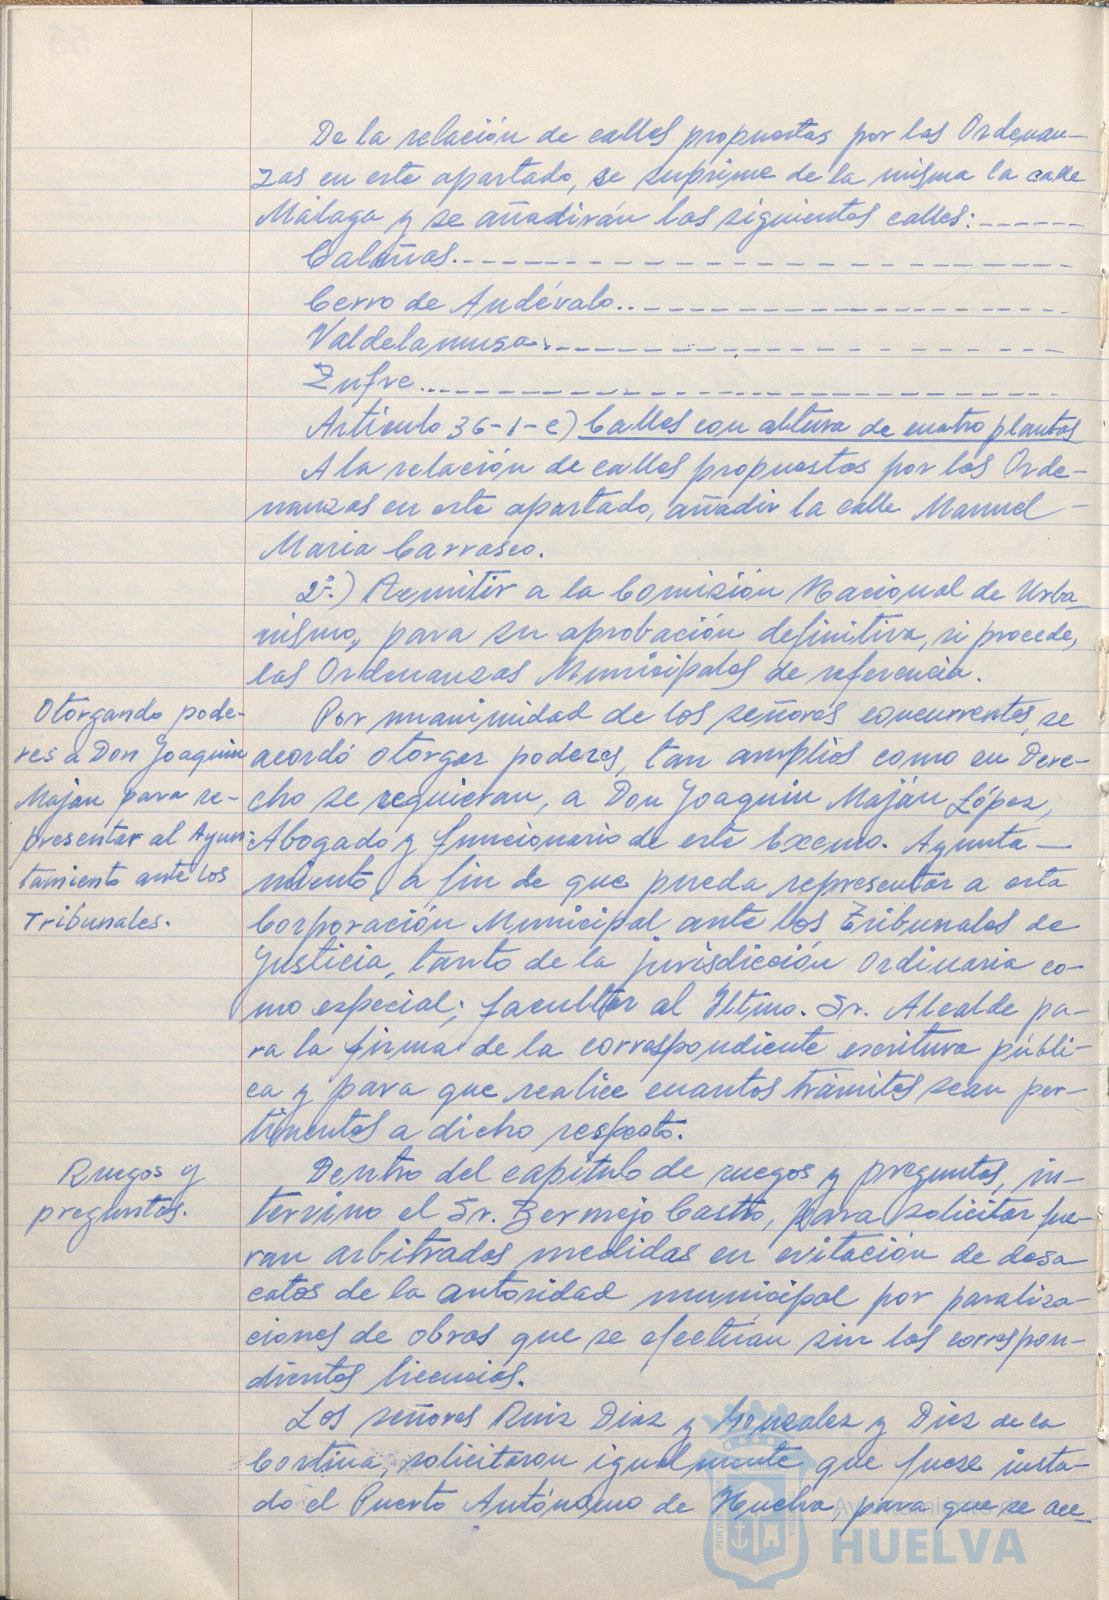 De la relación de calles propuestas por las Ordenan-
zas en este apartado, se suprime de la misma la calle
Málaga y se añadirán las siguientes calles:
Calañas.
Cerro de Andévalo..
Valdelamusa.
Zufre...
Artículo 36-1-e) Calles con altura de cuatro plantas
A la relación de calles propuestas por las Orde-
nanzas en este apartado, añadir la calle Manuel
Maria Carrasco.
2º.) Remitir a la Comisión Nacional de Urba-
nismo, para su aprobación definitiva, si procede,
las Ordenanzas Municipales de referencia.
Otorgando pode-
res a Don Joaquin
Maján para re-
presentar al Ayun-
tamiento ante los
Tribunales.
Por unanimidad de los señores concurrentes, se
acordó otorgar poderes, tan amplios como en Dere-
cho se requieran, a Don Joaquin Maján López,
Abogado y funcionario de este Excmo. Ayunta-
miento, a fin de que pueda representar a esta
Corporación Municipal ante los Tribunales de
Justicia, tanto de la jurisdicción ordinaria co-
mo especial; facultar al Iltmo. Sr. Alcalde pa-
ra la firma de la correspondiente escritura públi-
ca y para que realice cuantos trámites sean per-
tinentes a dicho respecto.
Ruegos y
preguntas.
Dentro del capítulo de ruegos y preguntas, in-
tervino el Sr. Bermejo Castro, para solicitar fue-
ran arbitradas medidas en evitación de desa-
catos de la autoridad municipal por paraliza-
ciones de obras que se efectúan sin las correspon-
dientes licencias.
Los señores Ruiz Diaz y Gonzalez y Diez de la
Cortina, solicitaron igualmente que fuese insta-
do el Puerto Autónomo de Huelva, para que se ace-
Ayuntamiento de
HUELVA